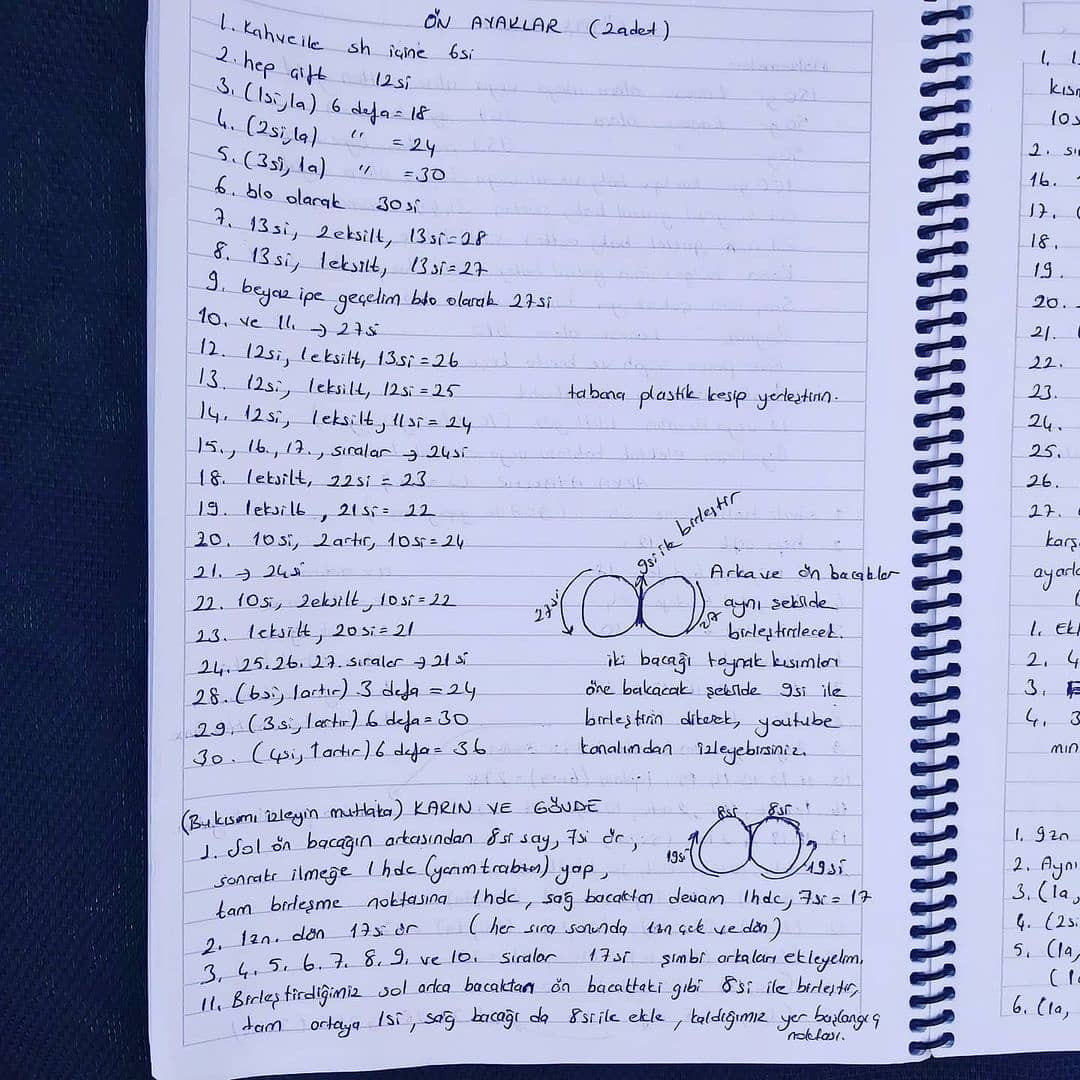 ÖN AYAKLAR (2adet)
1. Kahve ile sh içine 6si
2. hep çift 12si
3. (1si, 1a) 6 defa = 18
4. (2si, 1a) " = 24
5. (3si, 1a) " = 30
6. blo olarak 30si
7. 13si, 2eksilt, 13si = 28
8. 13si, 1eksilt, 13si = 27
9. beyaz ipe geçelim blo olarak 27si
10. ve 11. → 27si
12. 12si, 1eksilt, 13si = 26
13. 12si, 1eksilt, 12si = 25
tabana plastik kesip yerleştirin.
14. 12si, 1eksilt, 11si = 24
15., 16., 17., sıralar → 24si
18. 1eksilt, 22si = 23
19. 1eksilt, 21si = 22
20. 10si, 2artır, 10si = 24
21. → 24si
22. 10si, 2eksilt, 10si = 22
23. 1eksilt, 20si = 21
24. 25. 26. 27. sıralar → 21si
28. (6si, 1artır) 3 defa = 24
29. (3si, 1artır) 6 defa = 30
30. (4si, 1artır) 6 defa = 36
9si ile birleştir
27si
27
Arka ve ön bacaklar
aynı şekilde
birleştirilecek.
iki bacağı tırnak kısımları
öne bakacak şekilde 9si ile
birleştirin dikerek, youtube
kanalımdan izleyebirsiniz.
(Bu kısmı izleyin mutlaka) KARIN VE GÖVDE
8si 8si
19si 19si
1. Sol ön bacağın arkasından 8si say, 7si ör,
sonraki ilmeğe 1hdc (yarım trabzan) yap,
tam birleşme noktasına 1hdc, sağ bacaktan devam 1hdc, 7si = 17
2. 1zn. dön 17si ör (her sıra sonunda 1zn çek ve dön)
3. 4. 5. 6. 7. 8. 9. ve 10. sıralar 17si şimdi arkaları ekleyelim.
11. Birleştirdiğimiz sol arka bacaktan ön bacaktaki gibi 8si ile birleştir,
tam ortaya 1si, sağ bacağı da 8si ile ekle, kaldığımız yer başlangıç
noktası.
1. 1
kısm
10s
2. sı
16.
17. (
18.
19.
20.
21.
22.
23.
24.
25.
26.
27.
karş
ayarla
1. Ekl
2. 4
3.
4. 3
min
1. 9zn
2. Aynı
3. (1a,
4. (2s
5. (1a,
6. (1a,